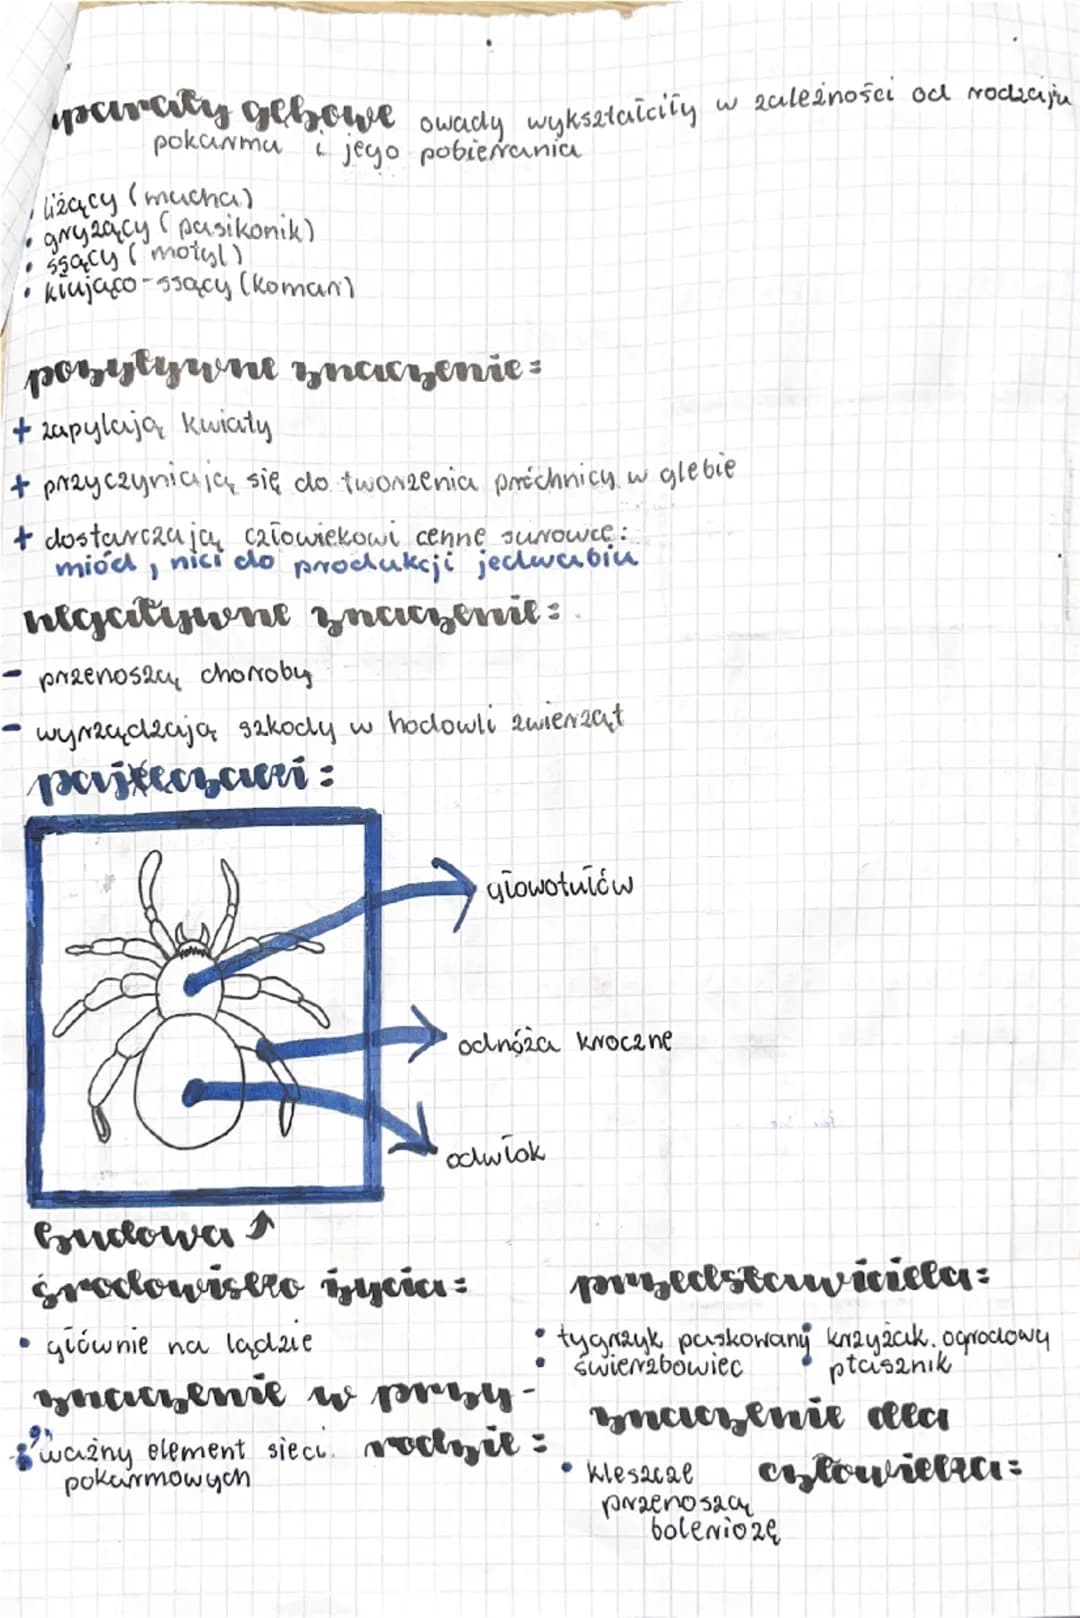 aparaty gębowe owady wykształciły w zależności od rodzaju
pokarmu i jego pobierania
• liżący (mucha)
• gryzący (pasikonik)
• ssący (motyl)
• kłująco-ssący (komar)
pozytywne znaczenie:
+ zapylają kwiaty
+ przyczyniają się do tworzenia próchnicy w glebie
+ dostarczają człowiekowi cenne surowce:
miód, nici do produkcji jedwabiu
negatywne znaczenie:
- przenoszą choroby
- wyrządzają szkody w hodowli zwierząt
pajęczaki:
głowotułów
odnóża kroczne
odwłok
budowa ↑
środowisko życia:
• głównie na lądzie
znaczenie w przy-
rodzie:
• ważny element sieci
pokarmowych
przedstawiciela:
• tygrzyk paskowany krzyżak ogrodowy
• świerzbowiec • ptasznik
znaczenie dla
człowieka:
• kleszcze
przenoszą
boleriozę